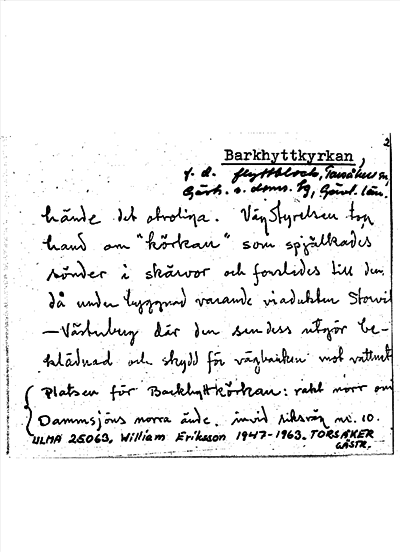 2
Barkhyttkyrkan,
f. d. flyttblock, Torsåkers sn,
Gästr. ö. doms. hg, Gävl. län.
hände det otroliga. Vägstyrelsen tog
hand om "körkan" som spjälkades
sönder i skärvor och forslades till den
då under byggnad varande viadukten Storvik
—Västerberg där den sendess utgör be-
klädnad och skydd för vägbanken mot vattnet
Platsen för Barkhyttkörkan: rakt norr om
Dammsjöns norra ände. invid riksväg nr. 10.
ULMA 25063, William Eriksson 1947-1963. TORSÅKER
GÄSTR.